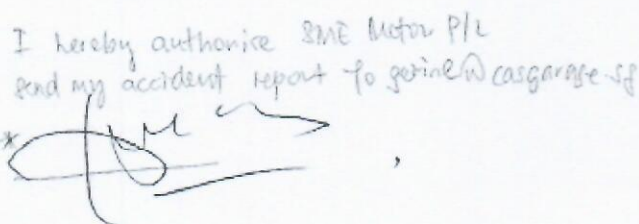 I hereby authorise SME Motor P/L
send my accident report to gerine@casgarage.sg
*